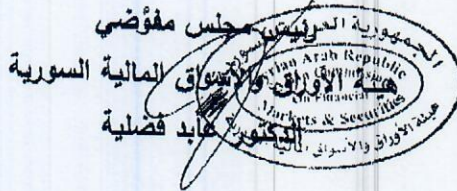 رئيس مجلس مفوضي
هيئة الأوراق والأسواق المالية السورية
الدكتور عابد فضلية
الجمهورية العربية السورية
Syrian Arab Republic
Commission
On Financial
Markets & Securities
هيئة الأوراق والأسواق المالية